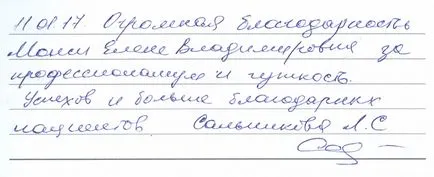 11.08.17. Огромная благодарность
Елене Владимировне за
профессионализм и чуткость.
Успехов и больше благодарных
пациентов. Сальникова Л.С